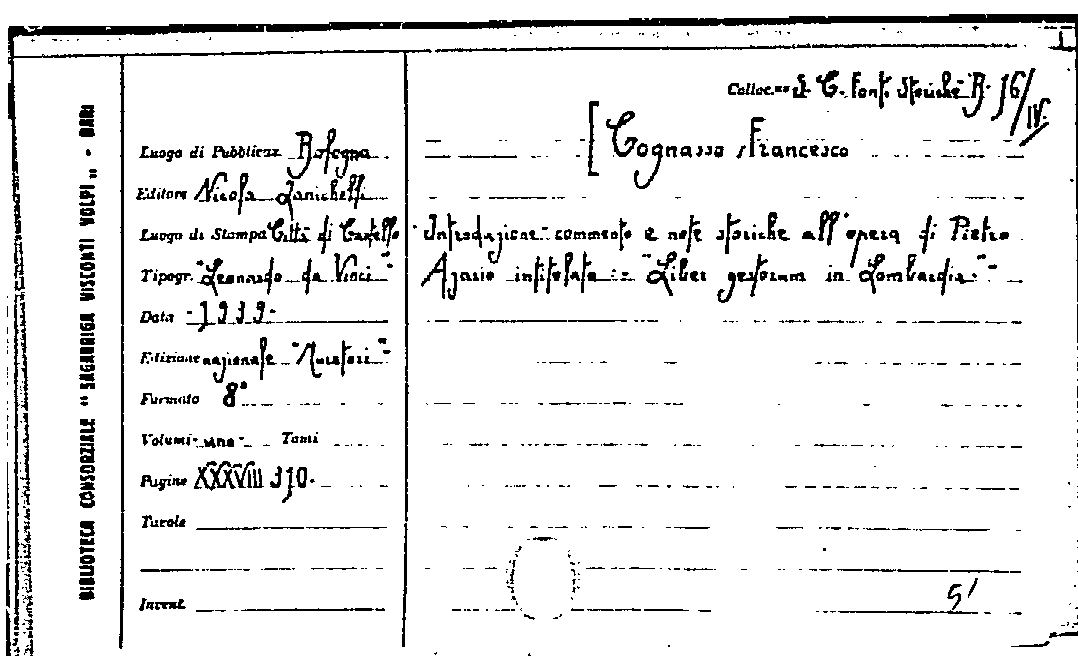 BIBLIOTECA CONSORZIALE "SAGARRIGA VISCONTI VOLPI" - BARI
Colloc.ne S. C. Fonti Storiche R. 16/IV.
[Cognasso Francesco
Luogo di Pubblicaz. Bologna
Editore Nicola Zanichelli
Luogo di Stampa Città di Castello
Introduzione commento e note storiche all'opera di Pietro
Tipogr. "Leonardo da Vinci"
Azario intitolata:= "Liber gestorum in Lombardia."
Data 1939
Edizione nazionale "Muratori"
Formato 8°
Volumi una Tomi
Pagine XXXVIII 310.
Tavole
Invent.